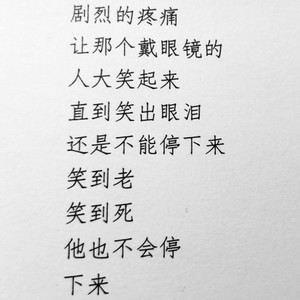 剧烈的疼痛
让那个戴眼镜的
人大笑起来
直到笑出眼泪
还是不能停下来
笑到老
笑到死
他也不会停
下来